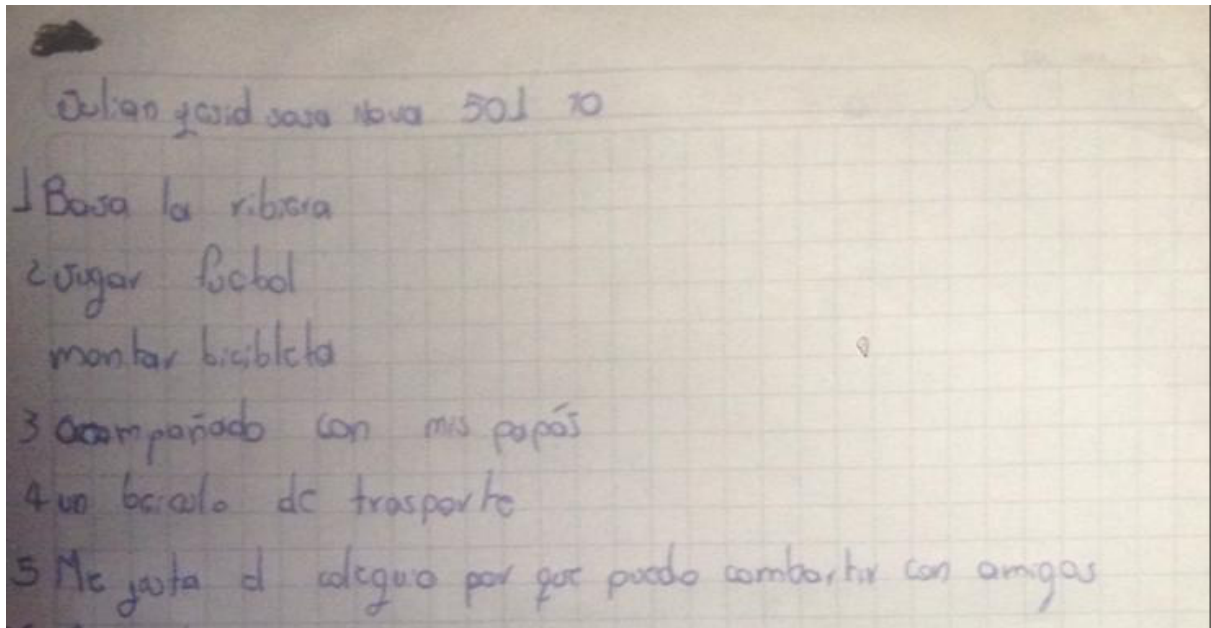 Julian yesid sosa Nova 501 10
1 Bosa la ribiera
2 Jugar fucbol
montar bicibleta
3 acompañado con mis papás
4 un beiculo de trasporte
5 Me gusta el coleguio por que puedo combartir con amigos